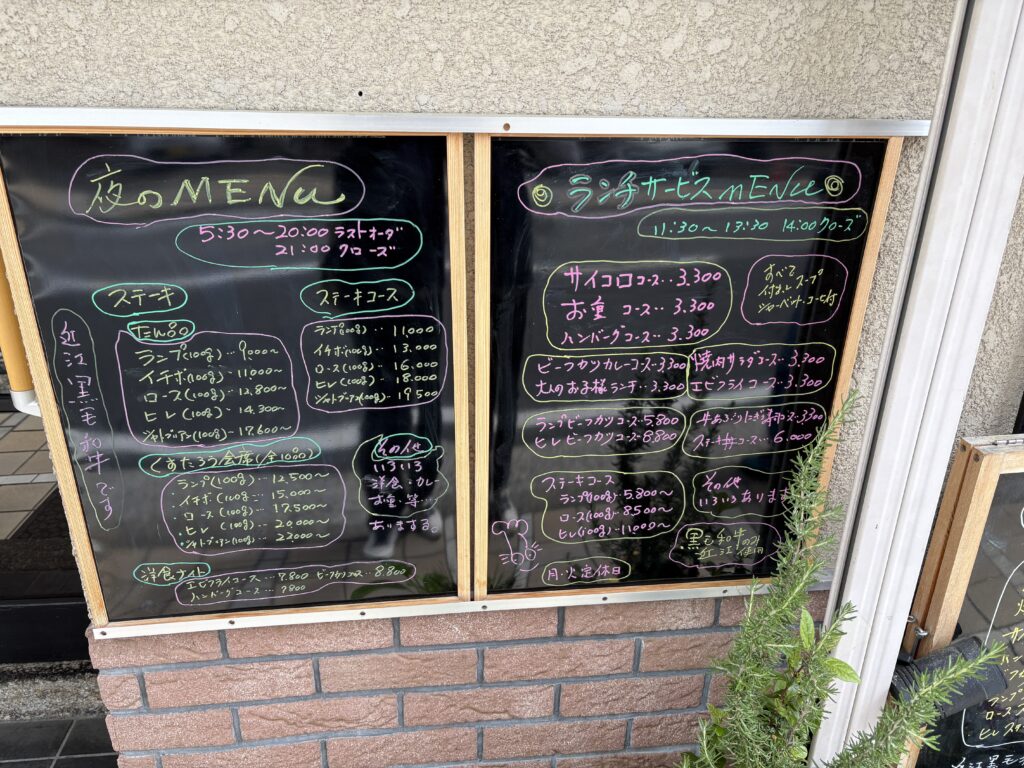 夜のMENU
5:30〜20:00 ラストオーダ
21:00 クローズ
近江黒毛和牛です
ステーキ
たん品
ランプ(100g)‥9000〜
イチボ(100g)‥11000〜
ロース(100g)‥12,800〜
ヒレ(100g)‥14,300〜
シャトブリアン(100g)‥17600〜
ステーキコース
ランプ(100g)‥11,000
イチボ(100g)‥13,000
ロース(100g)‥16,000
ヒレ(100g)‥18.000
シャトブリアン(100g)‥19,500
くすたろう会席(全10品)
・ランプ(100g)‥12,500〜
・イチボ(100g)‥15,000〜
・ロース(100g)‥17,500〜
・ヒレ(100g)‥20,000〜
・シャトブリアン(100g)‥22000〜
その他
いろいろ
洋食・カレー
お重・等…
あります。
洋食ナイト
エビフライコース…7.800 ビーフカツコース…8.800
ハンバーグコース…7800
ランチサービスMENU
11:30〜13:30 14:00クローズ
サイコロコース‥3.300
お重コース‥3.300
ハンバーグコース‥3.300
すべて
付出しスープ
シャーベット・コーヒ付
ビーフカツカレーコース‥3300
大人のお子様ランチ‥3.300
焼肉サラダコース‥3.300
エビフライコース‥3.300
ランプビーフカツコース‥5,800
ヒレビーフカツコース‥8,800
牛あぶりにぎり寿司コース‥3,300
ステーキ丼コース…6.000
ステーキコース
ランプ(100g)‥5,800〜
ロース(100g)‥8500〜
ヒレ(100g)‥11000〜
その他
いろいろあります
黒毛和牛のみ
近江使用
月・火定休日